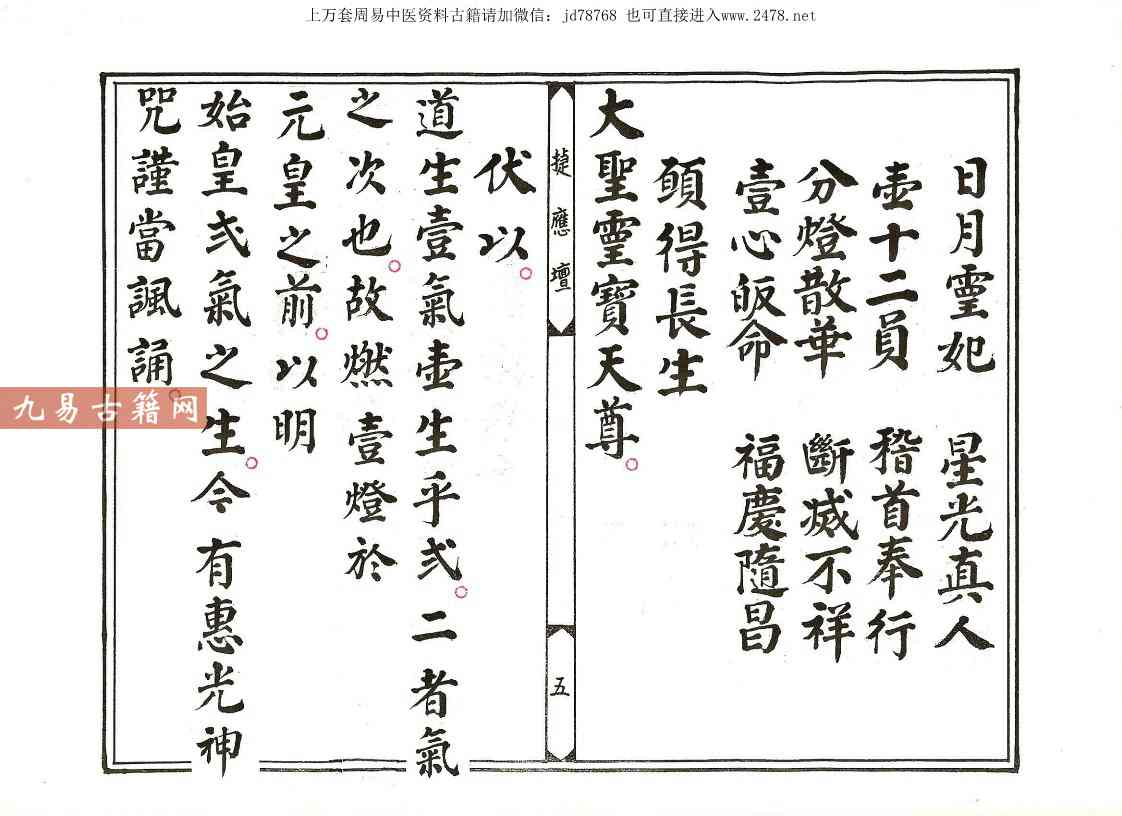 上万套周易中医资料古籍请加微信：jd78768 也可直接进入www.2478.net
日月霊妃 星光真人
壶十二員 稽首奉行
分燈散華 斷滅不祥
壹心皈命 福慶隨昌
頭得長生
大聖霊寶天尊。
捷應壇
五
伏以。
道生壹氣壶生乎弍。二者氣
之次也。故燃壹燈於
元皇之前。以明
始皇弍氣之生。今有惠光神
咒謹當諷誦。
九易古籍网